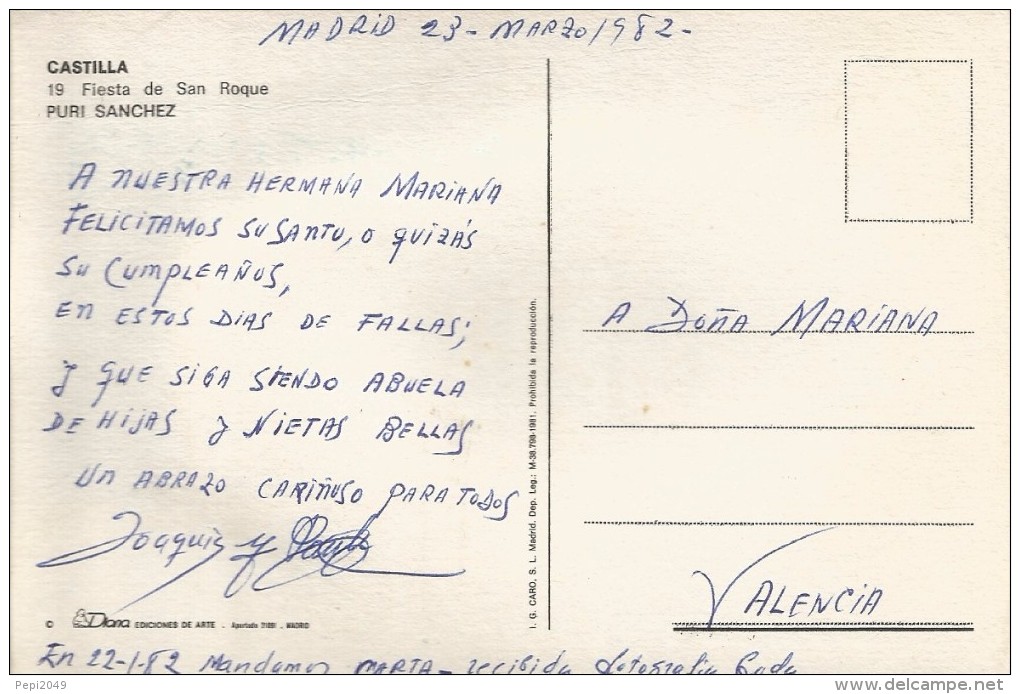 MADRID 23- MARZO/982-
CASTILLA
19 Fiesta de San Roque
PURI SANCHEZ
A NUESTRA HERMANA MARIANA
FELICITAMOS SU SANTO, O QUIZÁS
SU CUMPLEAÑOS,
EN ESTOS DIAS DE FALLAS;
Y QUE SIGA SIENDO ABUELA
DE HIJAS Y NIETAS BELLAS
UN ABRAZO CARIÑOSO PARA TODOS
Joaquin y
© Diana EDICIONES DE ARTE . Apartado . MADRID
I. G. CARO, S. L. Madrid. Dep. Leg.: M-38.798-1981. Prohibida la reproducción.
A DOÑA MARIANA
VALENCIA
En 22-1-82 Mandamos MARTA- recibida fotografia
Pepi2049
delcampe.net